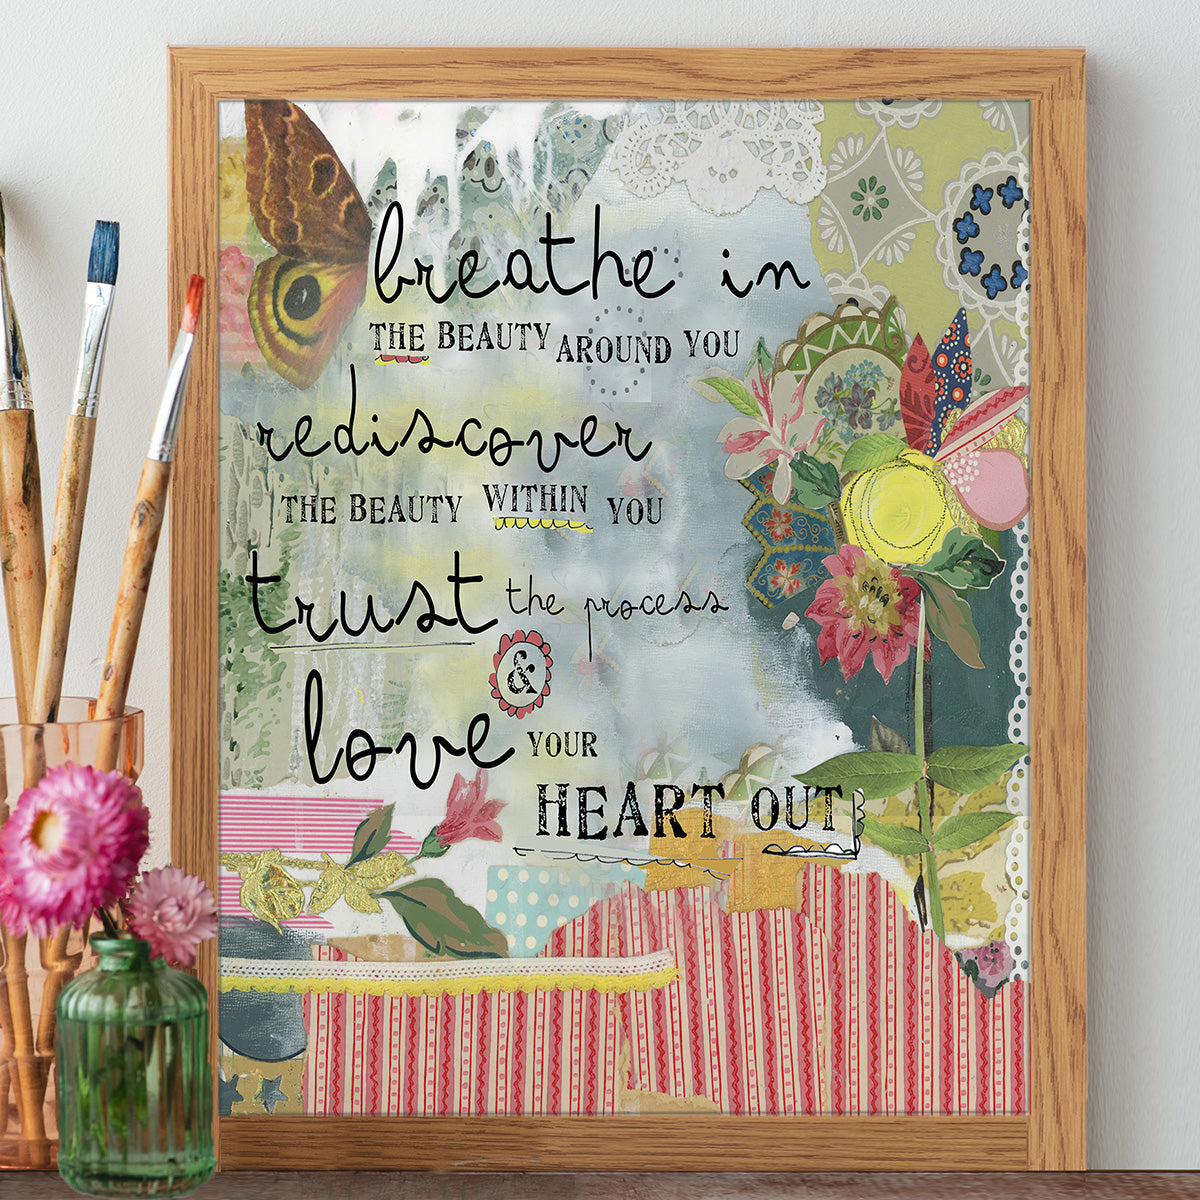 breathe in
THE BEAUTY AROUND YOU
rediscover
THE BEAUTY WITHIN YOU
trust the process
&
love YOUR
HEART OUT